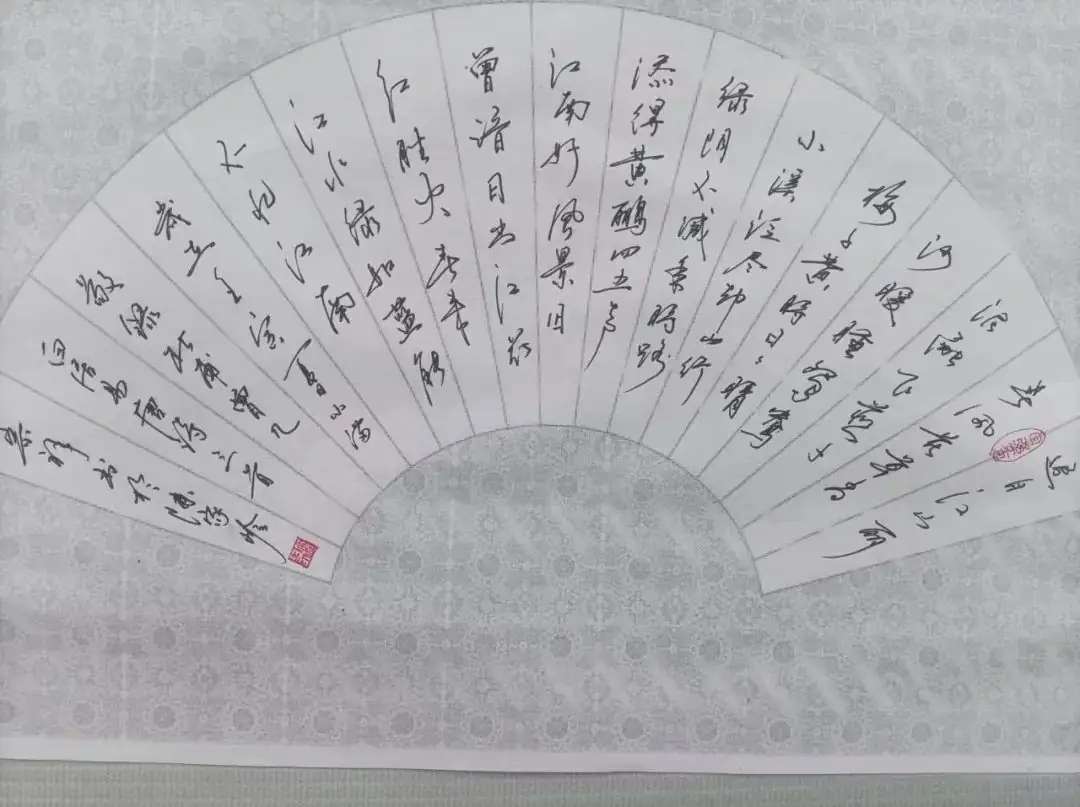 迟日江山丽
春风花草香
泥融飞燕子
沙暖睡鸳鸯
梅子黄时日日晴
小溪泛尽却山行
绿阴不减来时路
添得黄鹂四五声
江南好风景旧
曾谙日出江花
红胜火春来
江水绿如蓝能
不忆江南
岁在壬寅夏小满
敬录杜甫曾几
白居易唐诗三首
书於